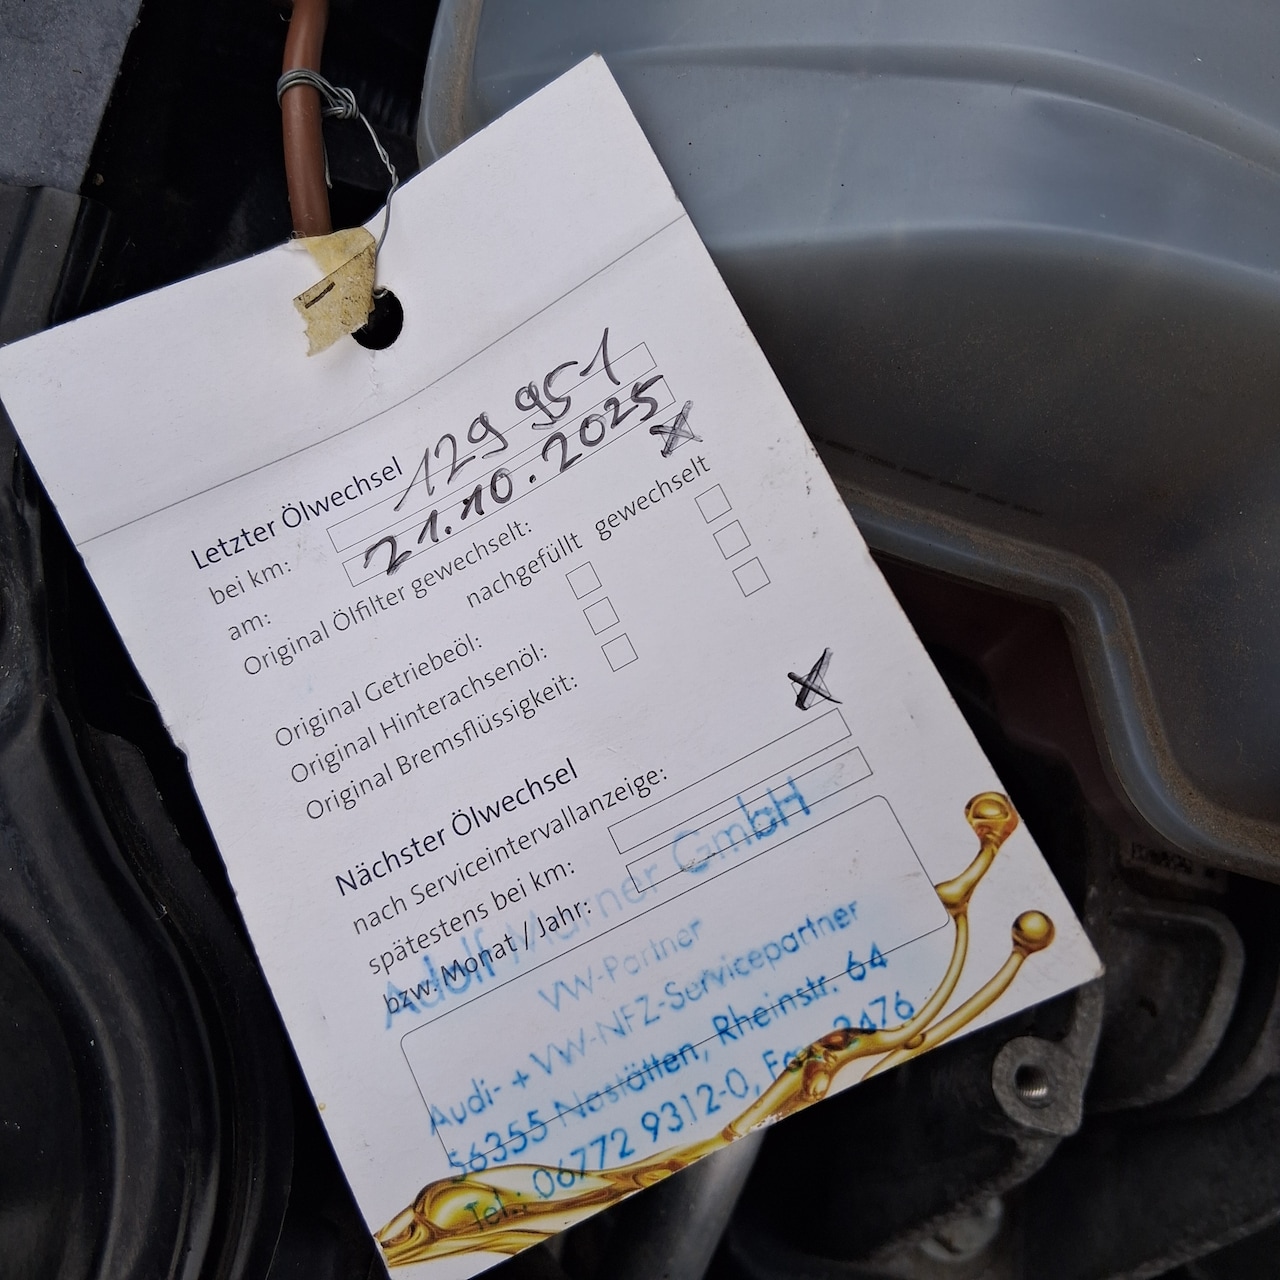 Letzter Ölwechsel
bei km: 129 951
am: 21.10.2025
Original Ölfilter gewechselt:
nachgefüllt gewechselt
Original Getriebeöl:
Original Hinterachsenöl:
Original Bremsflüssigkeit:
Nächster Ölwechsel
nach Serviceintervallanzeige:
spätestens bei km:
bzw. Monat / Jahr:
Adolf GmbH
VW-Partner
Audi- + VW-NFZ-Servicepartner
56355 Nastätten, Rheinstr. 64
Tel.: 06772 9312-0,